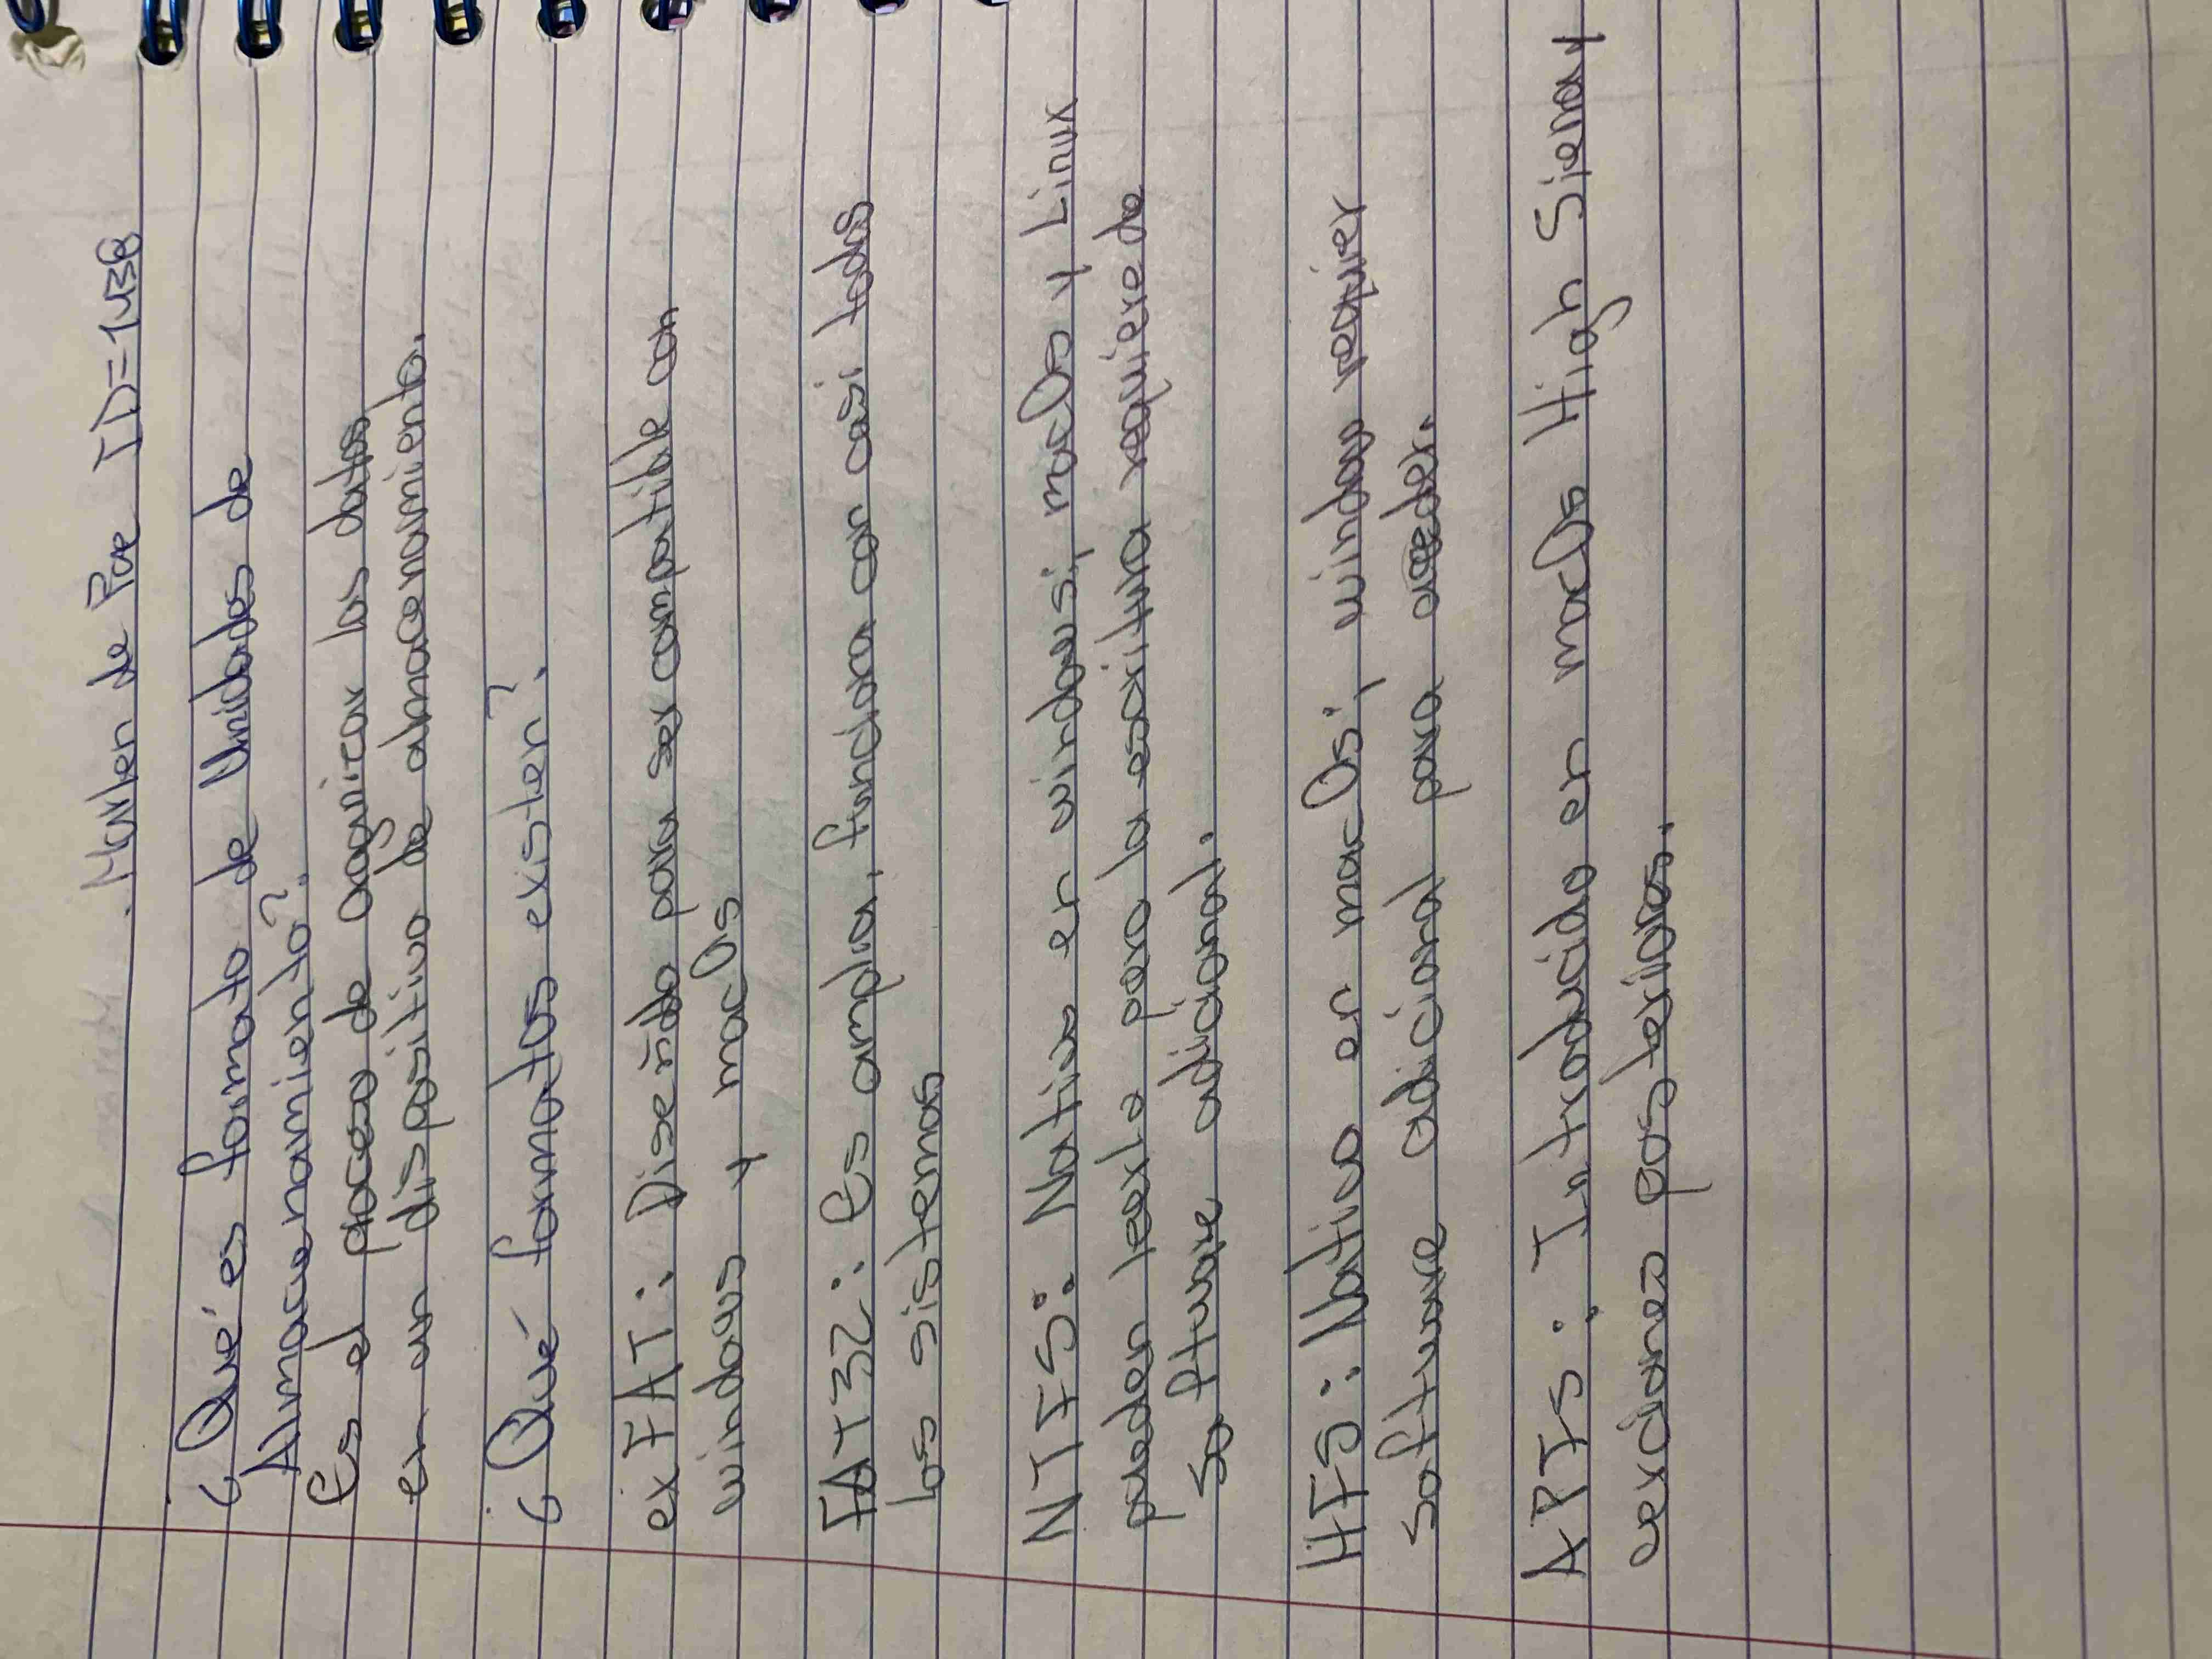 Marlen de Pae ID=1438
¿Qué es formato de Unidades de
Almacenamiento?
Es el proceso de organizar los datos
en un dispositivo de almacenamiento.
¿Qué formatos existen?
exFAT: Diseñado para ser compatible con
windows y macOs
FAT32: Es amplia, funciona con casi todos
los sistemas
NTFS: Nativo en windows, macOs y Linux
pueden leerlo pero la escritura requiere de
software adicional.
HFS: Nativo en macOs, windows requier
software adicional para acceder.
APFS: Introducido en macOs High Sierra y
verciones posteriores.